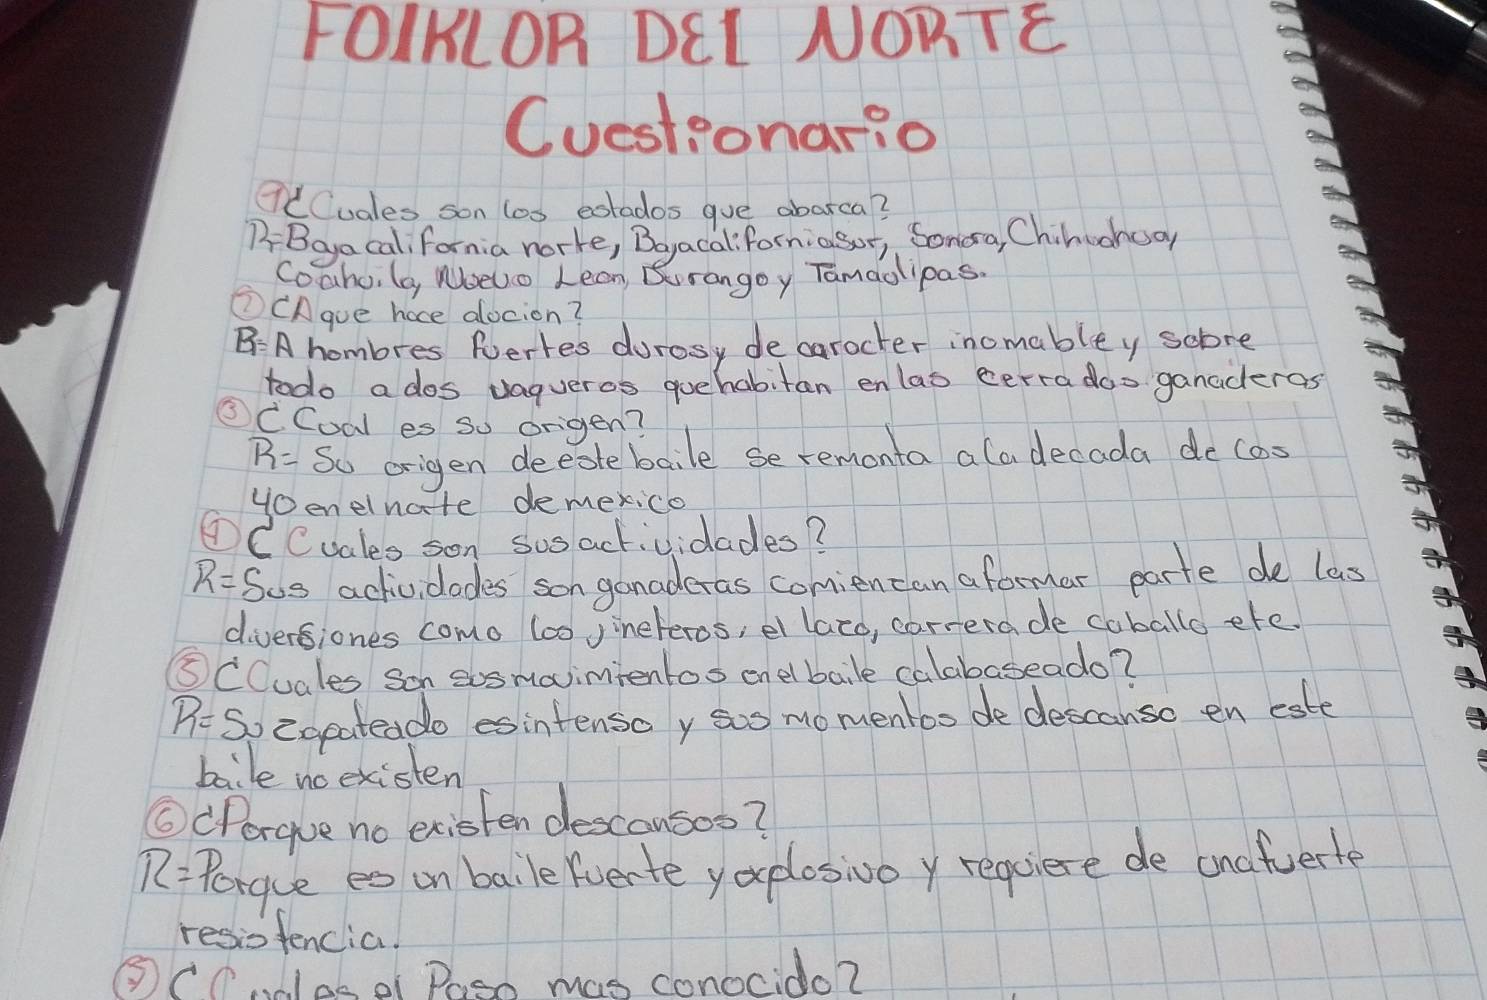 FOlKLOR DEL NORTE
Cuestionario
①¿Cuales son los estados que abarca?
R=Baya california norte, Bayacaliforniasur, Sonora, Chihuahua,
Coahuila, Nuevo Leon, Durango y Tamaulipas.
②¿A que hace alocion?
R=A hombres fuertes duros y de carocter inomable y sobre
todo a dos vaqueros que habitan en las cerradas ganaderas
③¿Cual es su origen?
R= Su origen de este baile se remonta a la decada de los
40 en el norte de mexico
④¿Cuales son sus actividades?
R=Sus actividades son ganaderas comienzan a formar parte de las
diversiones como los jineteros, el lazo, carrera de caballo etc.
⑤¿Cuales son sus movimientos en el baile calabaseado?
R=Su zapateado es intenso y sus momentos de descanso en este
baile no existen
⑥¿Porque no existen descansos?
R=Porque es un baile fuerte y explosivo y requiere de una fuerte
resistencia.
⑦¿Cual es el Paso mas conocido?